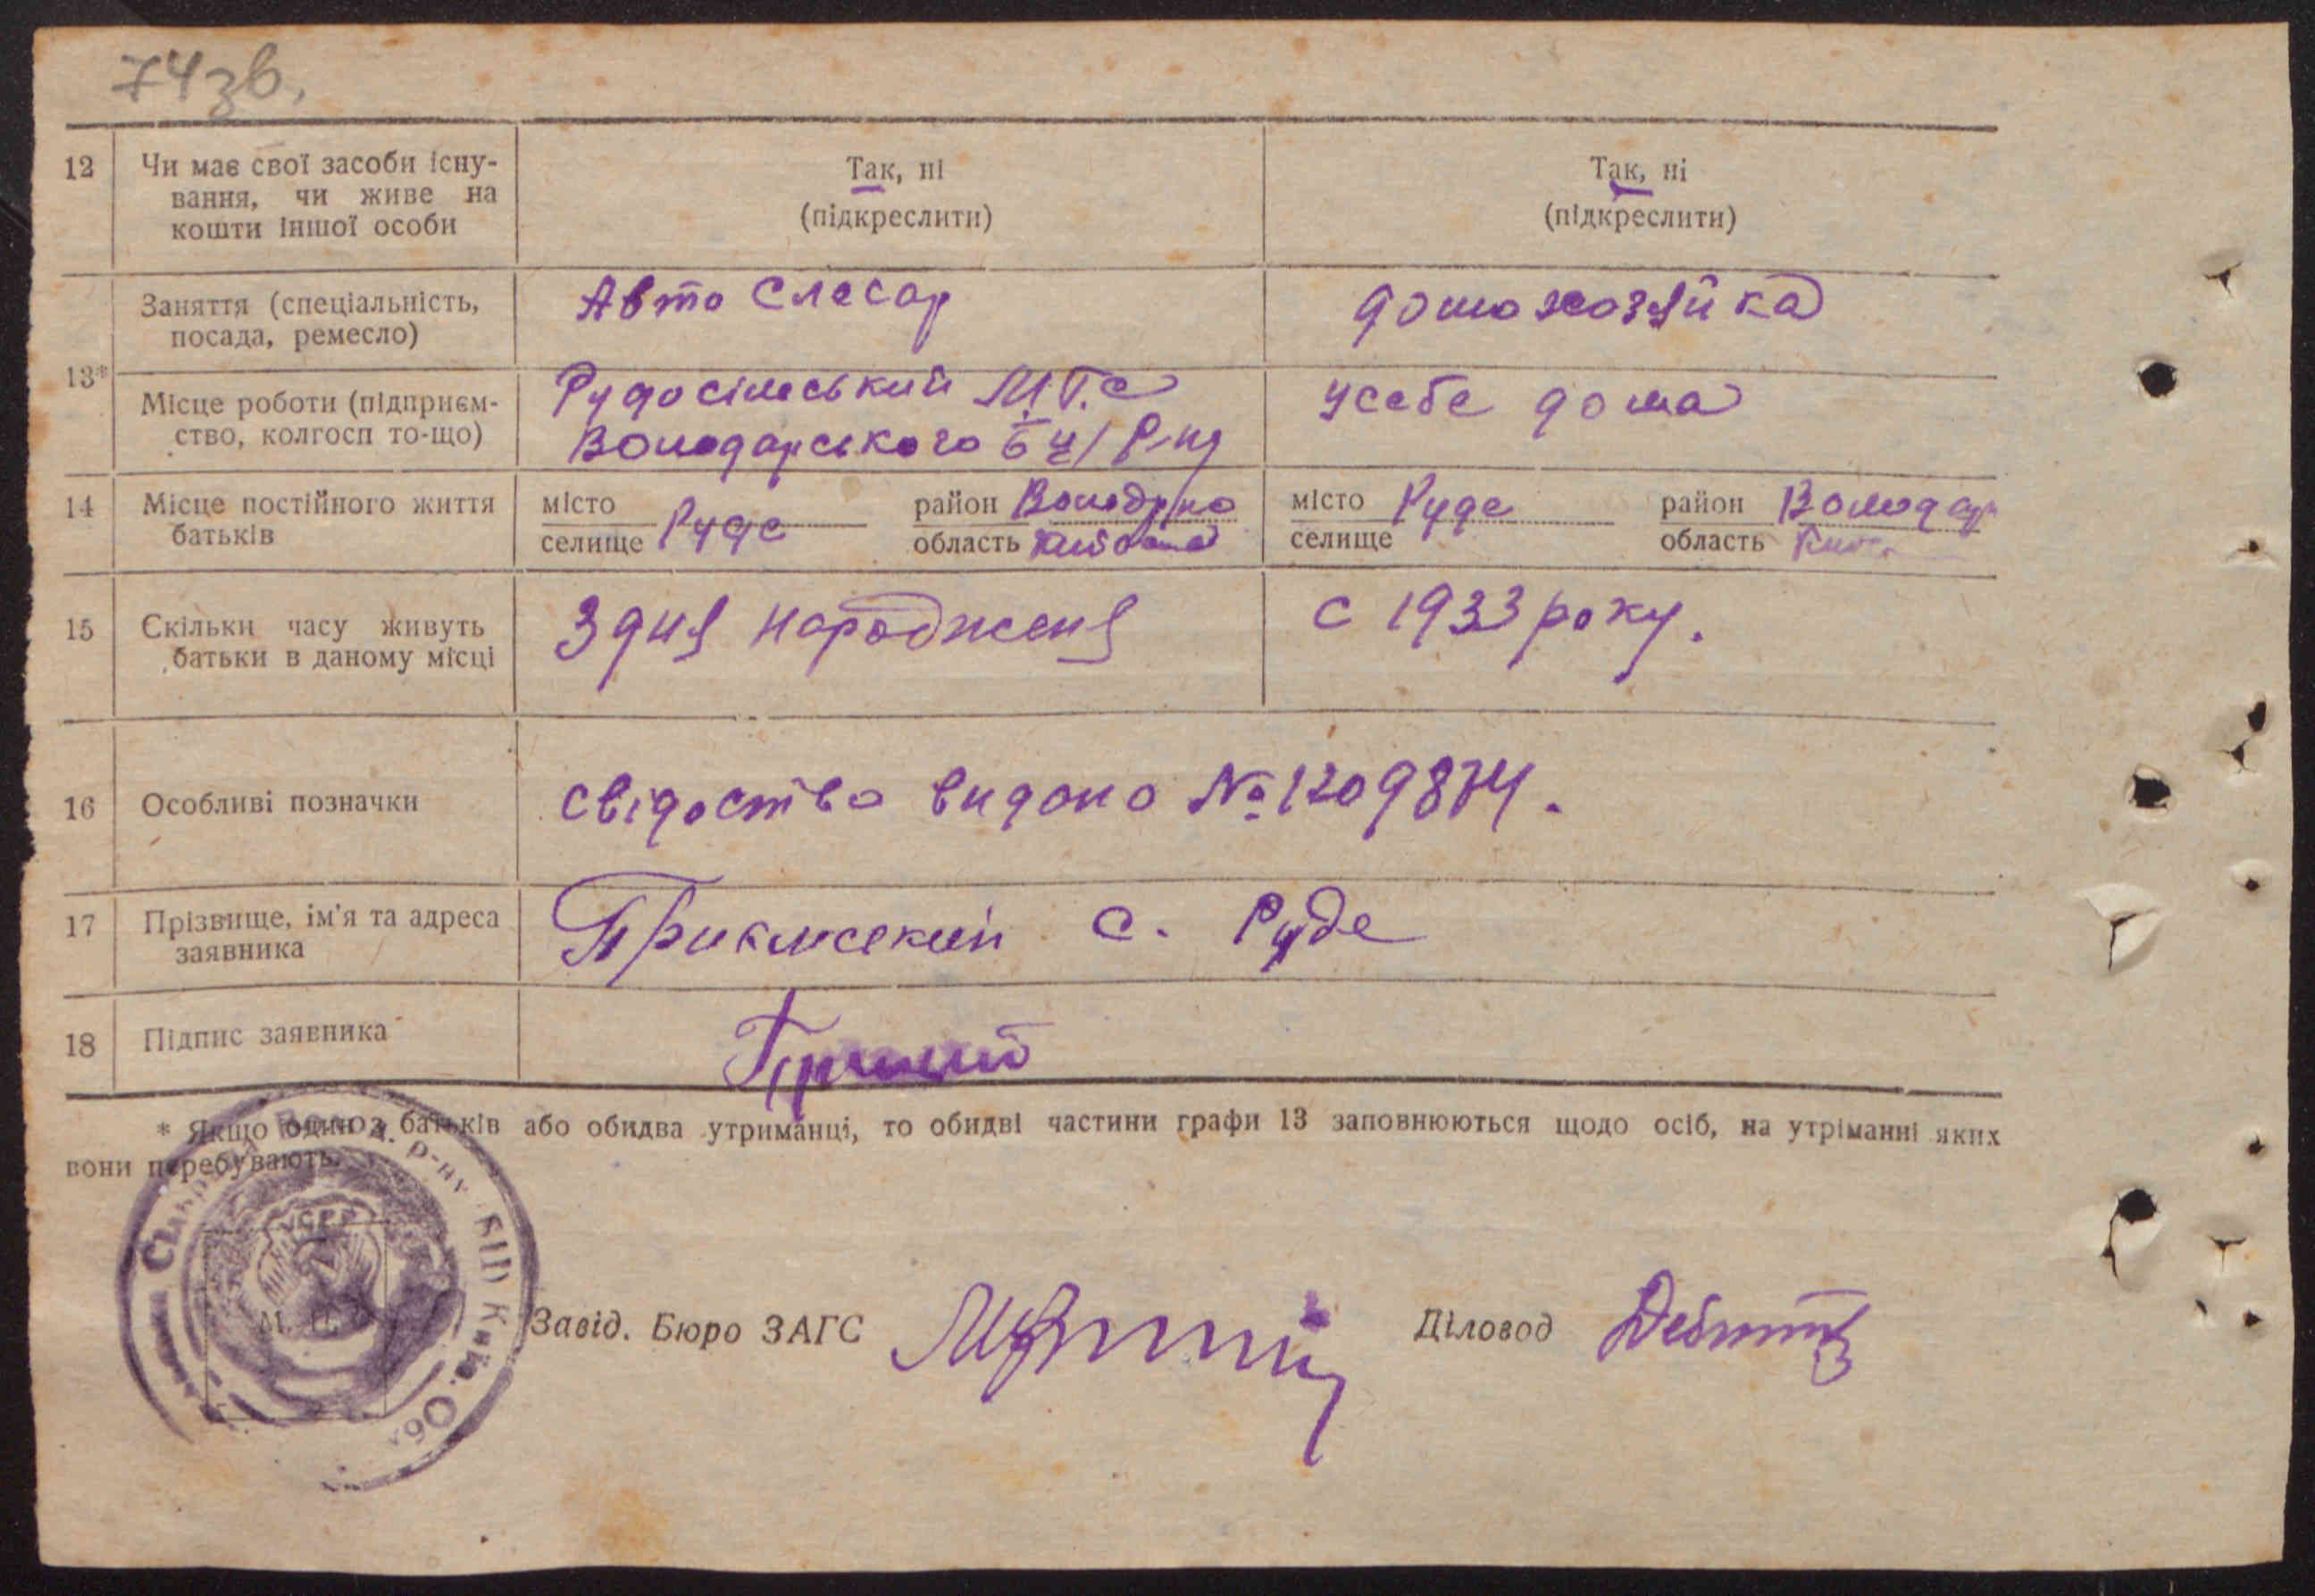 74зв.
12 Чи має свої засоби існу-
вання, чи живе на
кошти іншої особи
Так, ні
(підкреслити)
Так, ні
(підкреслити)
13*
Заняття (спеціальність,
посада, ремесло)
Авто слесар
домохозяйка
Місце роботи (підприєм-
ство, колгосп то-що)
Рудосільський М.Т.С
Володарського
у себе дома
14 Місце постійного життя
батьків
місто
селище
Руде
район
область
місто
селище
Руде
район Володар
область Київ.
15 Скільки часу живуть
батьки в даному місці
З дня народженя
с 1933 року.
16 Особливі позначки
свідоство видоно № 1209874.
17 Прізвище, ім'я та адреса
заявника
с. Руде
18 Підпис заявника
* Якщо один з батьків або обидва утриманці, то обидві частини графи 13 заповнюються щодо осіб, на утріманні яких
вони перебувають.
р-ну БЦ Київ. Обл
УСРР
М. П.
Завід. Бюро ЗАГС
Діловод